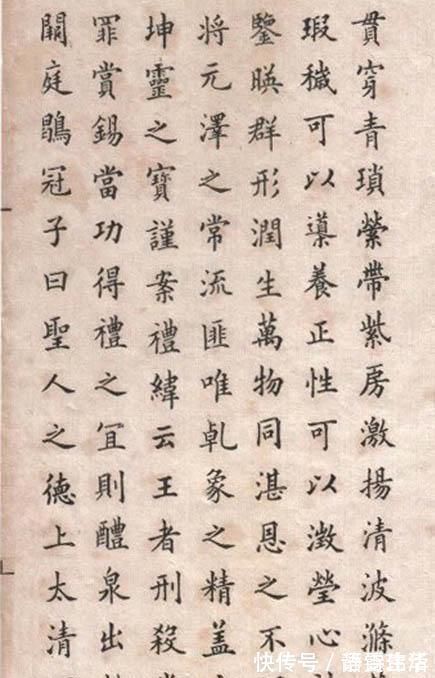 貫穿青瑣縈帶紫房激揚清波滌
瑕穢可以導養正性可以澂瑩心
鑒暎群形潤生萬物同湛恩之不
將元澤之常流匪唯乹象之精盖
坤靈之寶謹案禮緯云王者刑殺
罪賞錫當功得禮之冝則醴泉出
闕庭鶡冠子曰聖人之徳上太清
快传号/